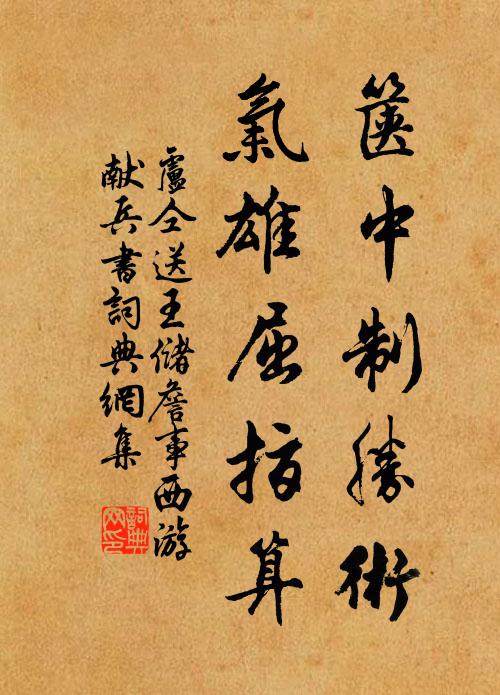 篋中制勝術
氣雄屈指算
盧仝送王儲詹事西游
献兵書詞典網集
詞典网印